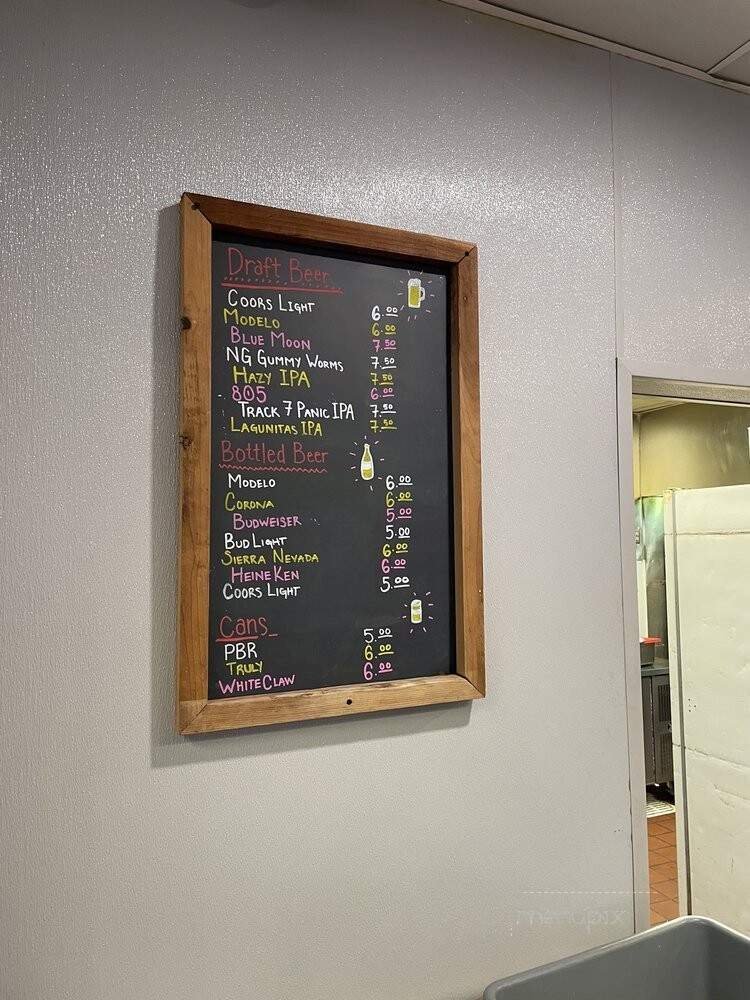 Draft Beer
Coors Light 6.00
Modelo 6.00
Blue Moon 7.50
NG Gummy Worms 7.50
Hazy IPA 7.50
805 6.00
Track 7 Panic IPA 7.50
Lagunitas IPA 7.50
Bottled Beer
Modelo 6.00
Corona 6.00
Budweiser 5.00
Bud Light 5.00
Sierra Nevada 6.00
HeineKen 6.00
Coors Light 5.00
Cans
PBR 5.00
Truly 6.00
White Claw 6.00
menupix